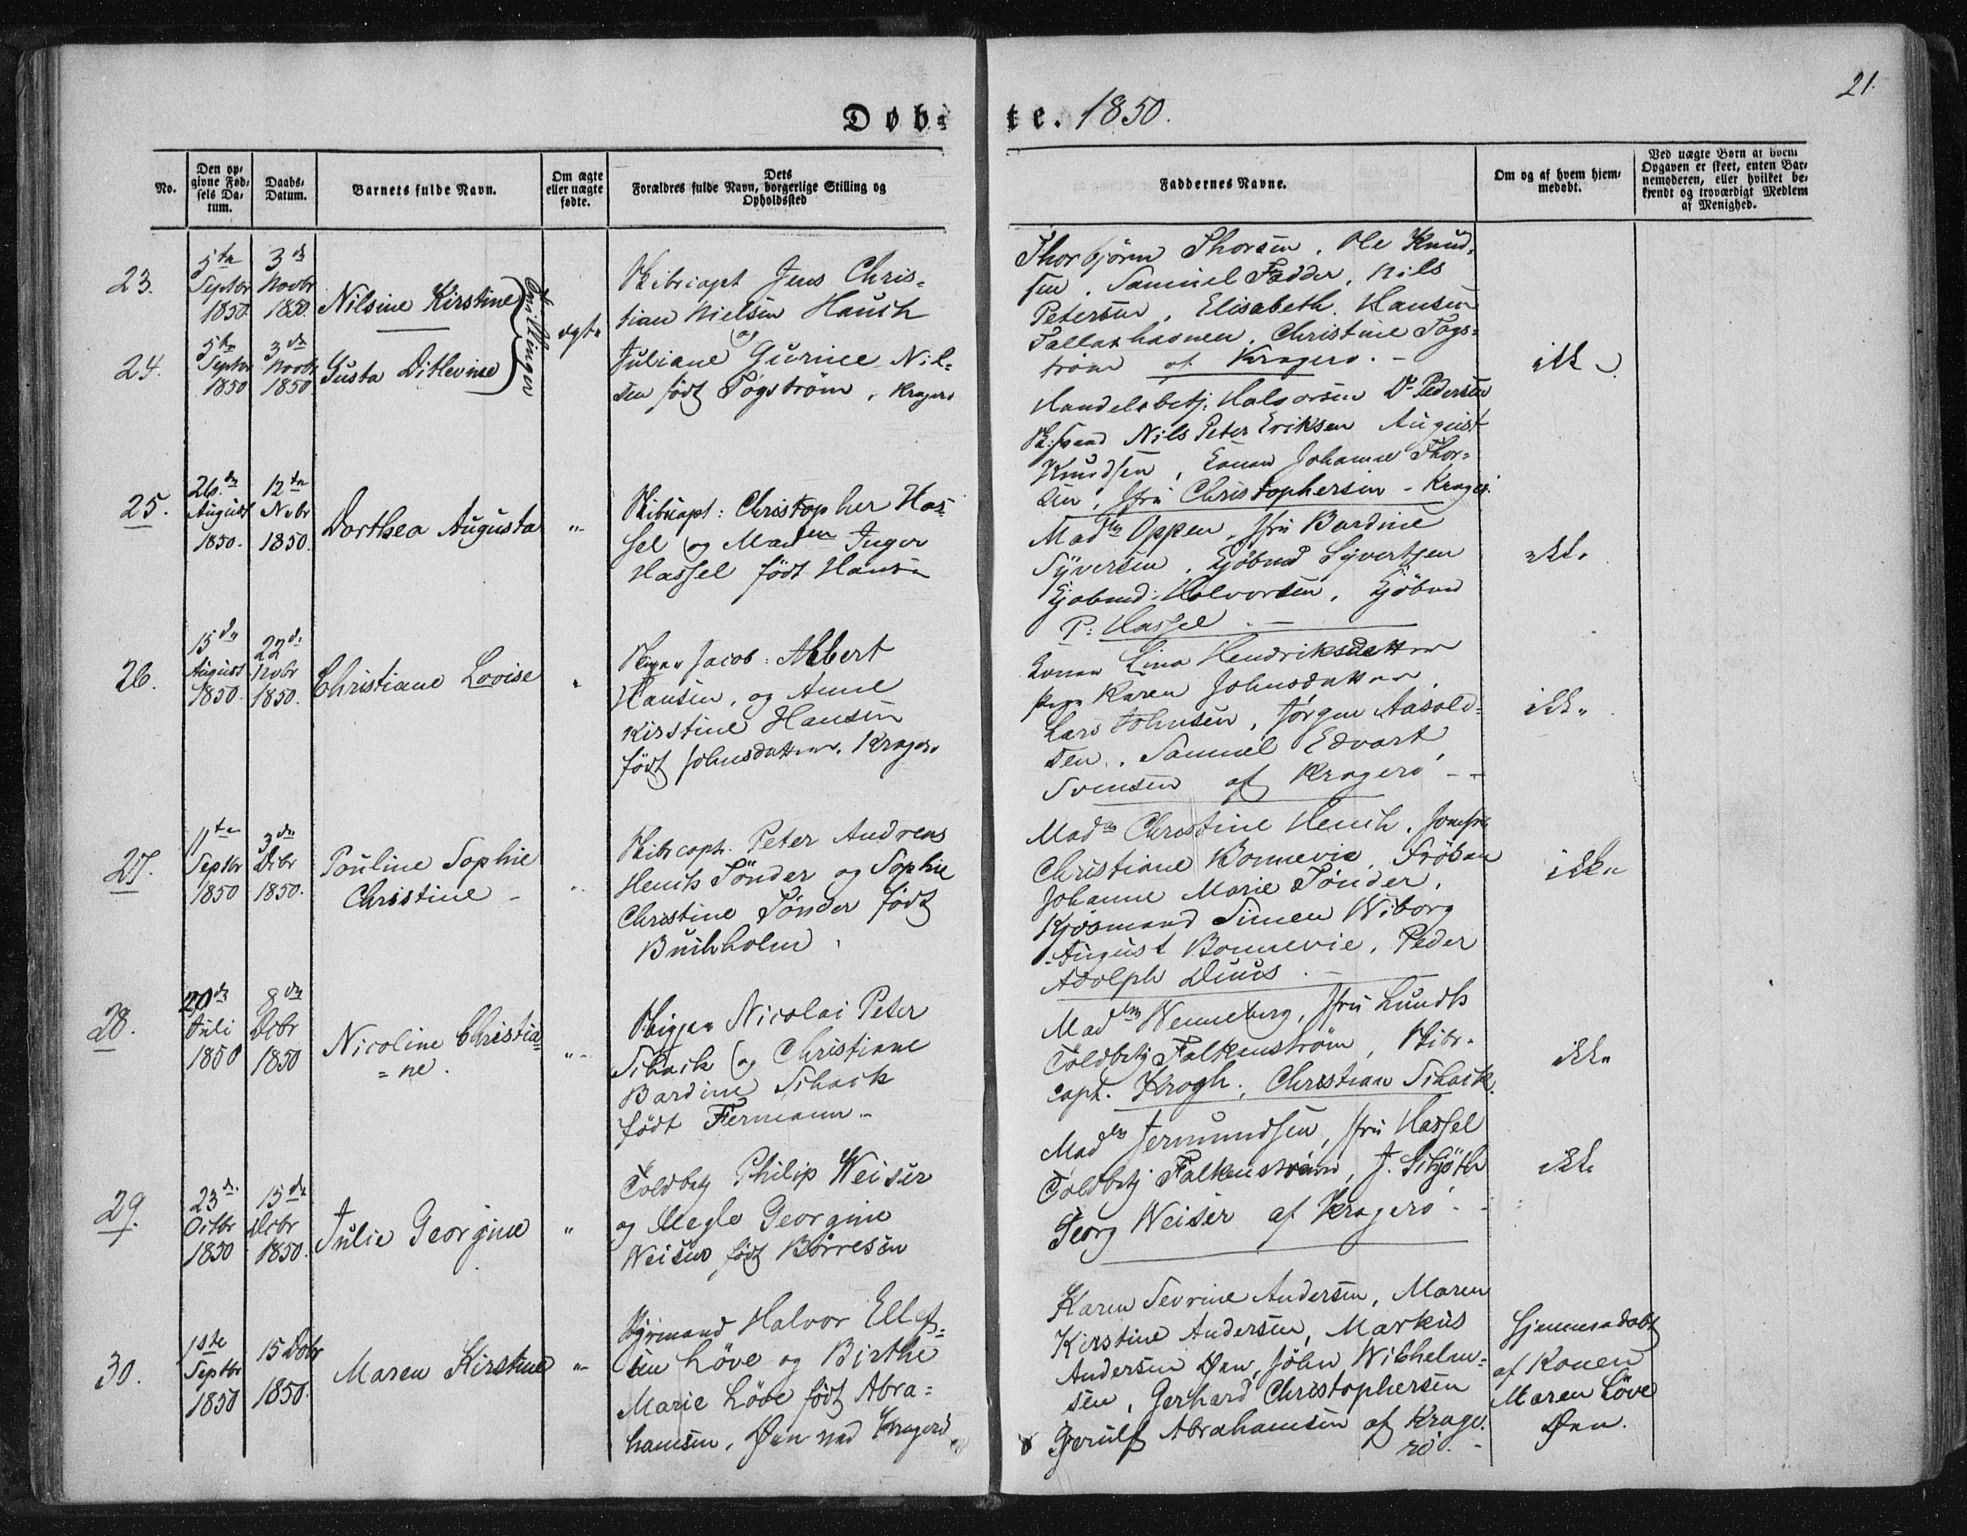 21.
Døb=
te. 1850.
No.
Den op=
givne Fød=
sels Da=
tum.
Daabs=
Datum.
Barnets fulde Navn.
Om ægte
eller uægte
fødte.
Dets
Forældres fulde Navn, borgerlige Stilling og
Opholdssted
Faddernes Navne.
Om og af hvem hjem=
medøbt.
Ved uægte Børn af hvem
Opgaven er skeet, enten Bar=
nemoderen, eller hvilket be=
kjendt og troværdigt Medlem
af Menighed.
23.
5te
Septbr
1850
3de
Novbr
1850.
Nilsine Kirstine
Tvillinger
ægte
Skibscapt Jens Chris=
tian Nielsen Hauch
og
Thorbjørn Thorsen, Ole Knud=
sen, Samuel Fadder, Nils
Petersen, Elisabeth Hansen
Christine Togs=
trøm af Kragerø. -
24.
5te
Septbr
1850
3de
Novbr
1850.
Gusta Ditlevine
Juliane Gurine Nil=
sen født Togstrøm, Kragerø
ikke
Handelsbetj. Halvorsen Do Pedersen
Nils Peter Eriksen August
Knudsen, Konen Johanne Thor=
sen, Jfru Christophersen - Kragerø.
25.
26de
August
1850.
12te
Nvbr
1850.
Dorthea Augusta
"
Skibscapt: Christopher Has=
sel og Maden Inger
Hassel født Hansen
Madm Oppen, Jfru Bardine
Syversen, Kjøbmd Syvertsen
Kjøbmd: Halvorsen, Kjøbmd
P: Hassel. -
ikke
26.
15de
August
1850.
22de
Nvbr
1850.
Christiane Lovise
"
Skipper Jacob Albert
Hansen, og Anne
Kirstine Hansen
født Johnsdatter. Kragerø
Konen Lina Hendriksdatter
Pigen Karen Johnsdatter,
Lars Johnsen, Jørgen Aasold=
sen, Samuel Edvart
Svensen af Kragerø - -
ikke
27.
11te
Septbr
1850
3de
Dcbr
1850.
Pauline Sophie
Christine -
"
Skibscapt. Peter Andreas
Hench Tønder og Sophie
Christine Tønder født
Buchholm.
Madm Christine Hench, Jomfru
Christiane Bonnevie, Frøken
Johanne Marie Tønder,
Kjøbmand Simen Wiborg
August Bonnevie, Peder
Adolph Duus. -
ikke
28.
29de
Juli
1850
8de
Dcbr
1850
Nicoline Christia=
=ne.
"
Skipper Nicolai Peter
Schack og Christiane
Bardine Schack
født Fermann -
Madm Wenneberg, Jfru Lundh
Toldbetj Falkenstrøm, Skibs=
capt. Krogh, Christian Schack.
ikke
29.
23de
Octbr
1850
15de
Dcbr
1850.
Julie Georgine
"
Toldbetj Philip Weiser
og Megle Georgine
Weiser, født Børresen
Madm Jermundsen, Jfru Hassel
Toldbetj Falkenstrøm, J. Schjøth
Georg Weiser af Kragerø - -
ikke
30.
1ste
Septbr
1850
15 Dcbr
1850.
Maren Kirstine
"
Styrmand Halvor Ellef=
sen Løve og Birthe
Marie Løve født Abra=
hamsen, Øen ved Kragerø
Karen Sevrine Andersen, Maren
Kirstine Andersen, Markus
Andersen Øen, John Wilhelm=
sen, Gerhard Christophersen
Gjerulf Abrahamsen af Krage=
rø. -
Hjemmedøbt
af Konen
Maren Løve
Øen.